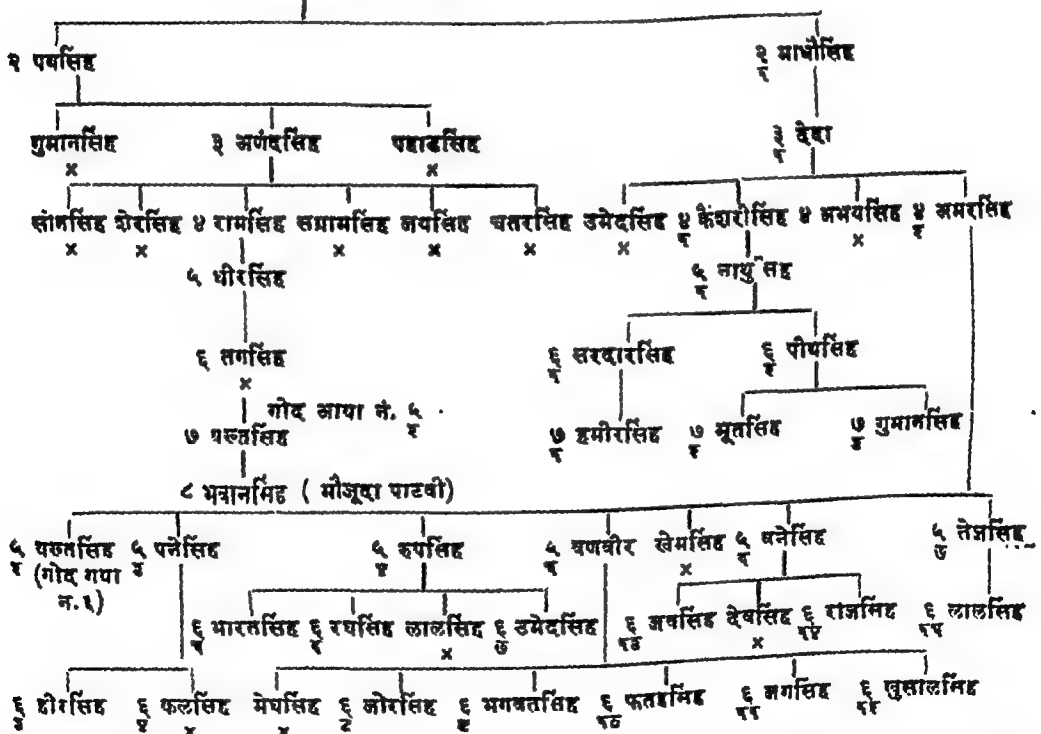 २ पद्मसिंह २/१ माधौसिंह
गुमानसिंह ३ अणंदसिंह पहाडसिंह ३/१ देदा
× ×
सांमसिंह शेरसिंह ४ रामसिंह सग्रामसिंह जयसिंह चतरसिंह उमेदसिंह ४/१ कैशरीसिंह ४ अभयसिंह ४/२ अमरसिंह
× × × × × × ×
५ धीरसिंह ५/१ नाथुसिंह
६ तगसिंह ६/१ सरदारसिंह ६/२ पीथसिंह
×
गोद आया नं. ५/२
७ वख्तसिंह ७/१ हमीरसिंह ७/२ मूतसिंह ७/३ गुमानसिंह
८ भवानसिंह ( मौजूदा पाटवी)
५/२ वख्तसिंह ५/३ पनेसिंह ५/४ रुपसिंह ५/५ वणवीर खेमसिंह ५/६ धनेसिंह ५/७ तेजसिंह
(गोद गया ×
न.६)
६/५ भारतसिंह ६/६ रघसिंह लालसिंह ६/७ उमेदसिंह ६/१३ जवसिंह देवसिंह ६/१४ राजसिंह ६/१५ लालसिंह
× ×
६/३ हीरसिंह ६/४ फलसिंह मेघसिंह ६/८ जोरसिंह ६/९ भगवतसिंह ६/१० फतहसिंह ६/११ जगसिंह ६/१२ खुसालसिंह
× ×